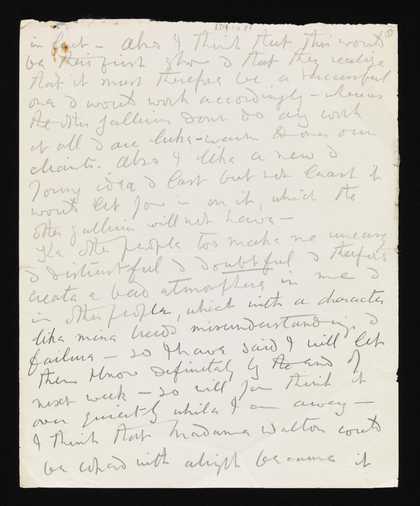 in fact – Also I think that this would
be their first show & that they realize
that it must therefore be a successful
one & would work accordingly – whereas
the other galleries dont do any work
at all & are luke-warm to ones own
clients. Also I like a new &
young idea & last but not least it
would let you in on it, which the
other galleries will not have –
The other people too make me uneasy
& distrustful & doubtful & therefore
create a bad atmosphere in me &
in other people, which with a character
like mine breeds misunderstandings &
failure – so I have said I will let
them know definitely by the end of
next week – so will you think it
over quietly while I am away –
I think that Madame Walton could
be coped with alright because it